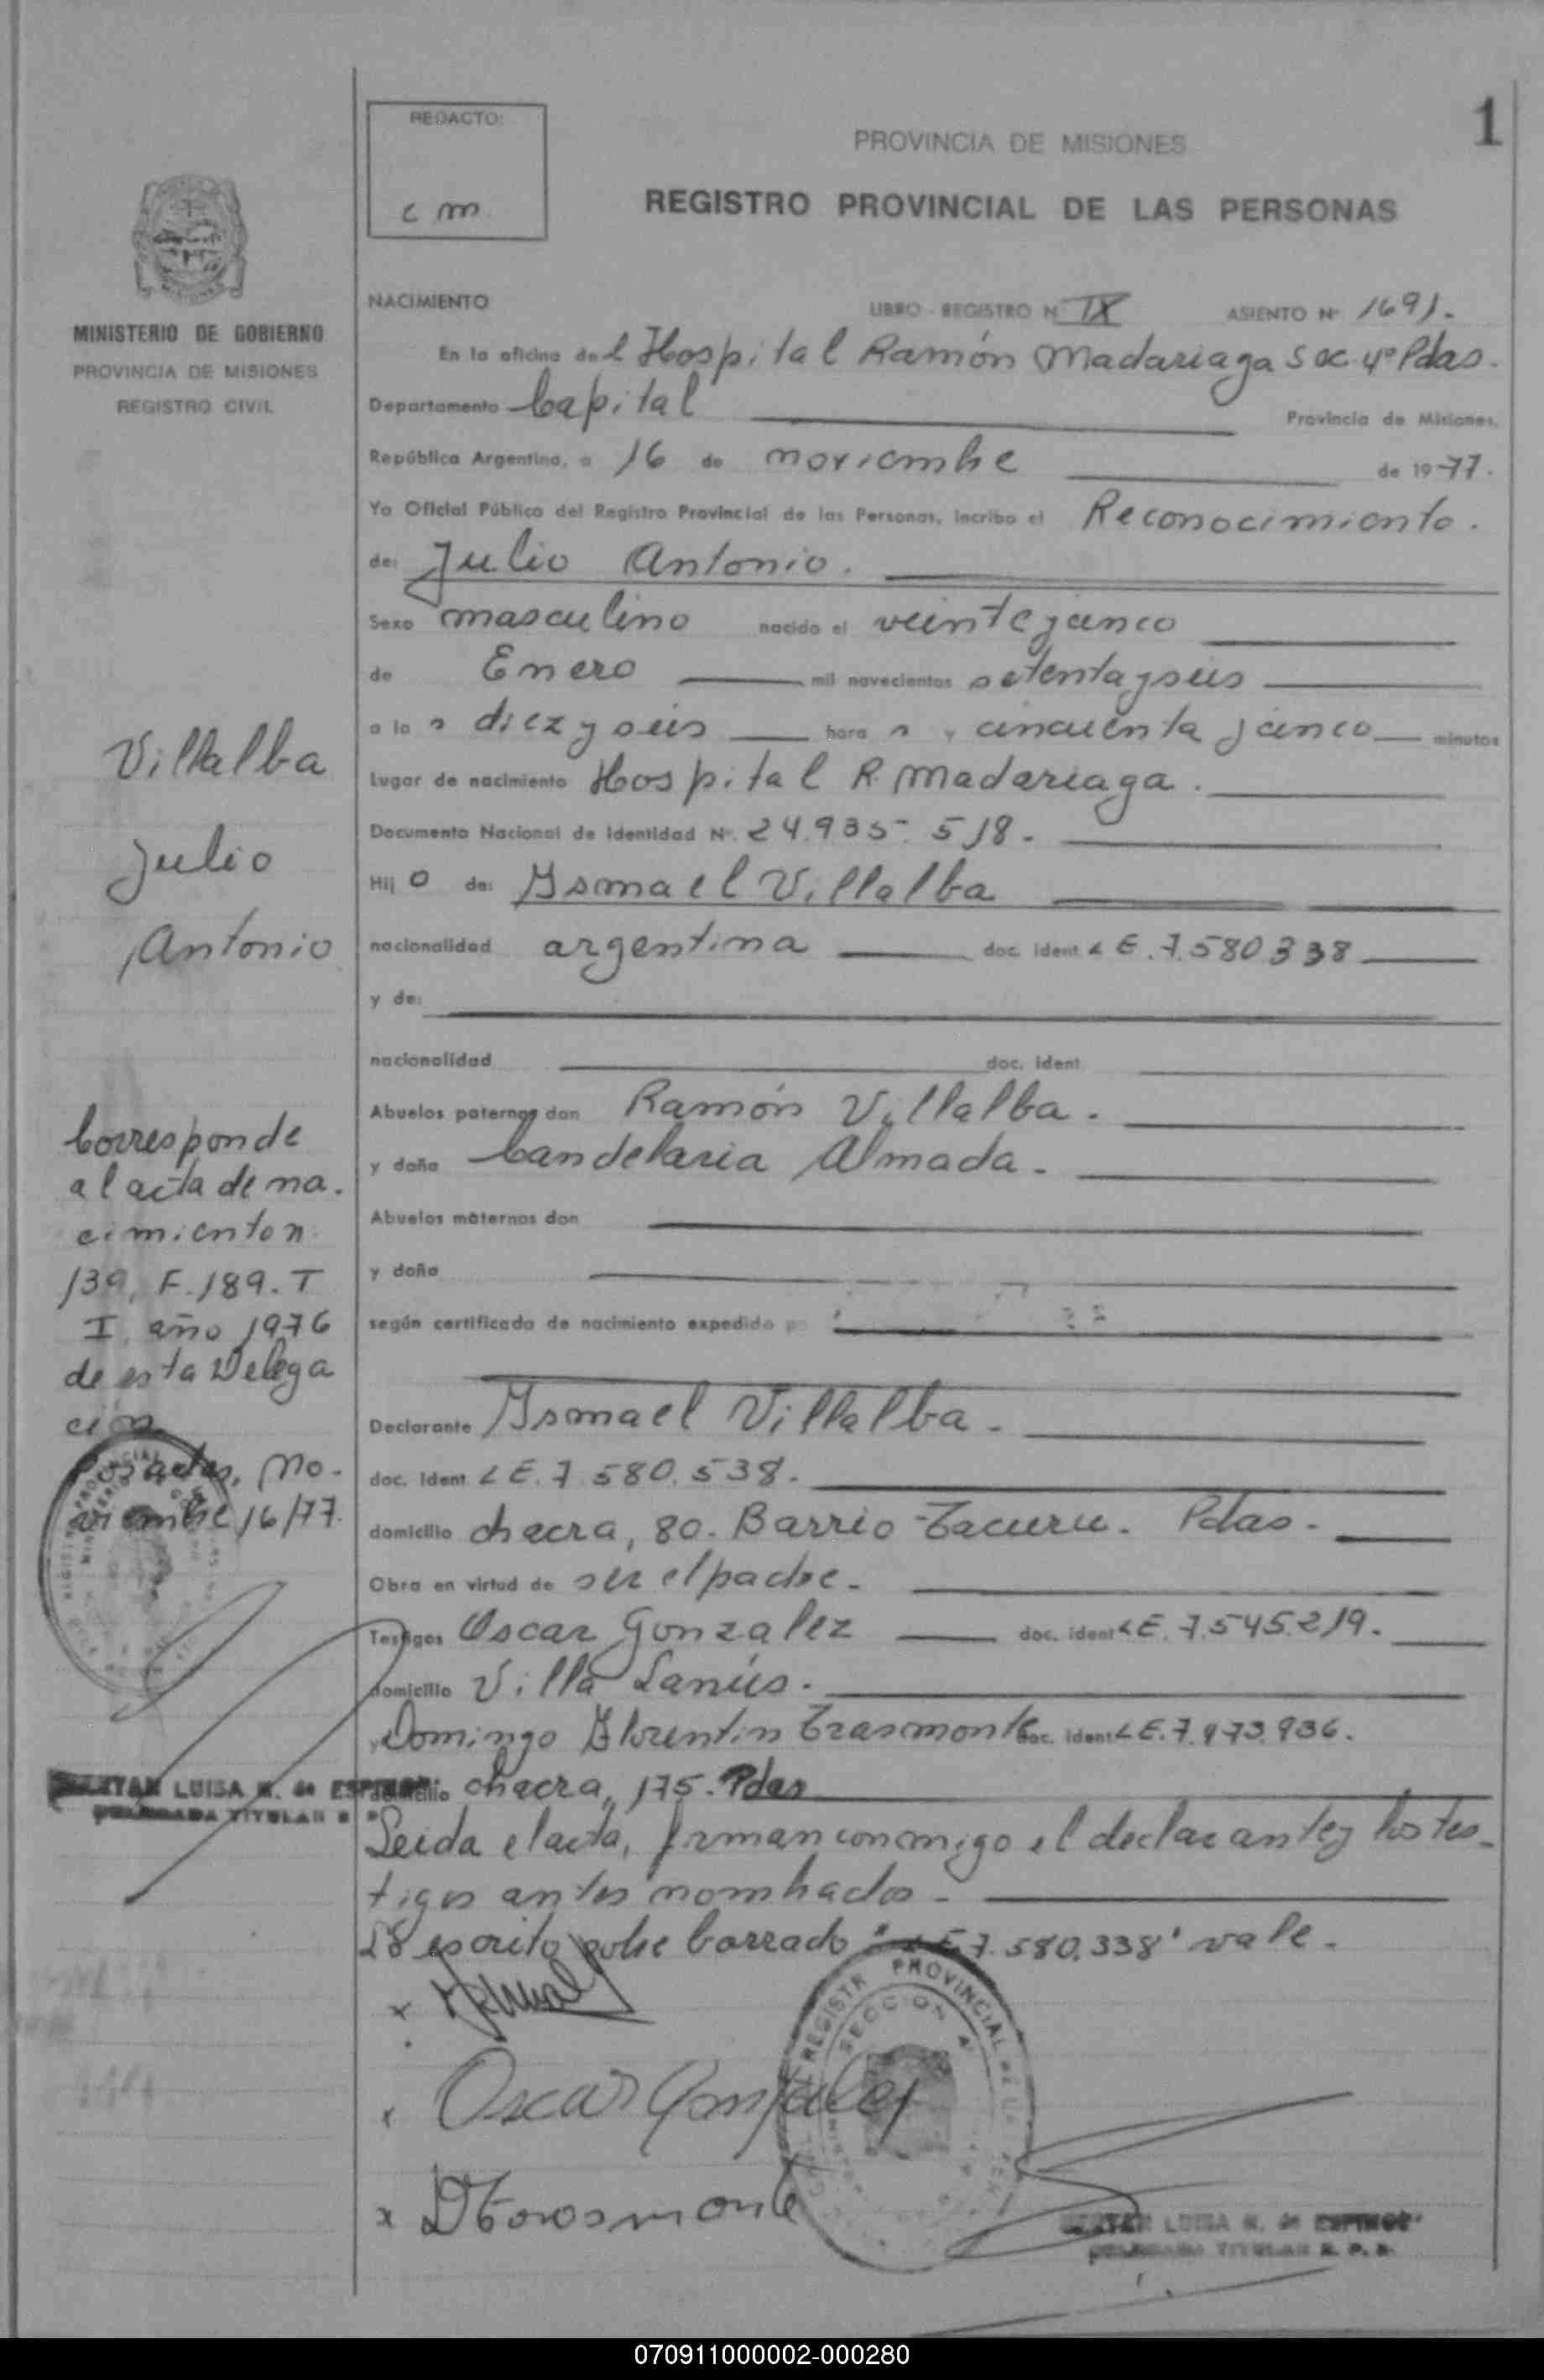 1
REDACTO:
c m
PROVINCIA DE MISIONES
REGISTRO PROVINCIAL DE LAS PERSONAS
MINISTERIO DE GOBIERNO
PROVINCIA DE MISIONES
REGISTRO CIVIL
Villalba
Julio
Antonio
Corresponde
al acta de na.
cimiento n
139, F. 189. T
I. año 1976
de esta Delega
ción
Posadas, no.
viembre 16/77.
LUISA N. de ESPINOZ
DELEGADA TITULAR
NACIMIENTO LIBRO - REGISTRO N IX ASIENTO Nº 1691.
En la oficina del Hospital Ramón Madariaga Sec 4º Pdas.
Departamento Capital Provincia de Misiones,
República Argentina, a 16 de noviembre de 1977.
Yo Oficial Público del Registro Provincial de las Personas, incribo el Reconocimiento.
de: Julio Antonio.
Sexo masculino nacido el veinteycinco
de Enero mil novecientos setentayseis
a la s diez y seis hora s y cincuenta y cinco minutos
Lugar de nacimiento Hospital R. Madariaga.
Documento Nacional de Identidad Nº. 24.935.518.
Hij o de: Ysmael Villalba
nacionalidad argentina doc. ident L E. 7.580.338
y de:
nacionalidad doc. ident
Abuelos paternos don Ramón Villalba.
y doña Candelaria Almada.
Abuelos maternos don
y doña
según certificado de nacimiento expedido p
Declarante Ysmael Villalba.
doc. ident L E. 7.580.538.
domicilio chacra, 80. Barrio Tacuru. Pdas.
Obra en virtud de ser el padre.
Testigos Oscar Gonzalez doc. ident L E. 7.545.219.
domicilio Villa Lanús.
y Domingo Florentin Trasmonte doc. ident L E. 7.473.936.
domicilio chacra, 175. Pdas
Leida el acta, firman conmigo el declarante y los tes-
tigos antes nombrados.
Lo escrito sobre borrado "L E 7.580.338" vale.
x
x Oscar Gonzalez
x DTrasmonte
REGISTR PROVINCIAL DE LAS PER
SECCION 4
LUISA N. de ESPINOZ
DELEGADA TITULAR R. P. P.
070911000002-000280